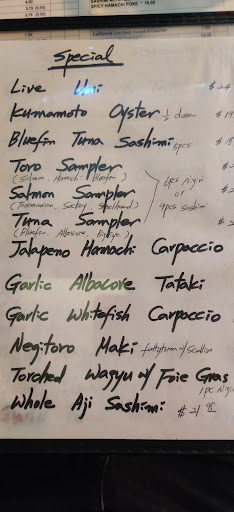 SPICY HAMACHI POKE * 16.95
Special
Live Uni $24
Kumamoto Oyster ½ dozen $19
Bluefin Tuna Sashimi 5pcs $18
Toro Sampler $2
(Salmon, Hamachi, Bluefin)
Salmon Sampler 6pcs Nigiri $2
(Tasmanian, Sockey, Steelhead) or
Tuna Sampler 9pcs sashimi $2
(Bluefin, Albacore, Bigeye)
Jalapeno Hamachi Carpaccio
Garlic Albacore Tataki
Garlic Whitefish Carpaccio
Negitoro Maki fattytuna w/ Scallion
Torched Wagyu w/ Foie Gras
1 pc Nigi
Whole Aji Sashimi $21